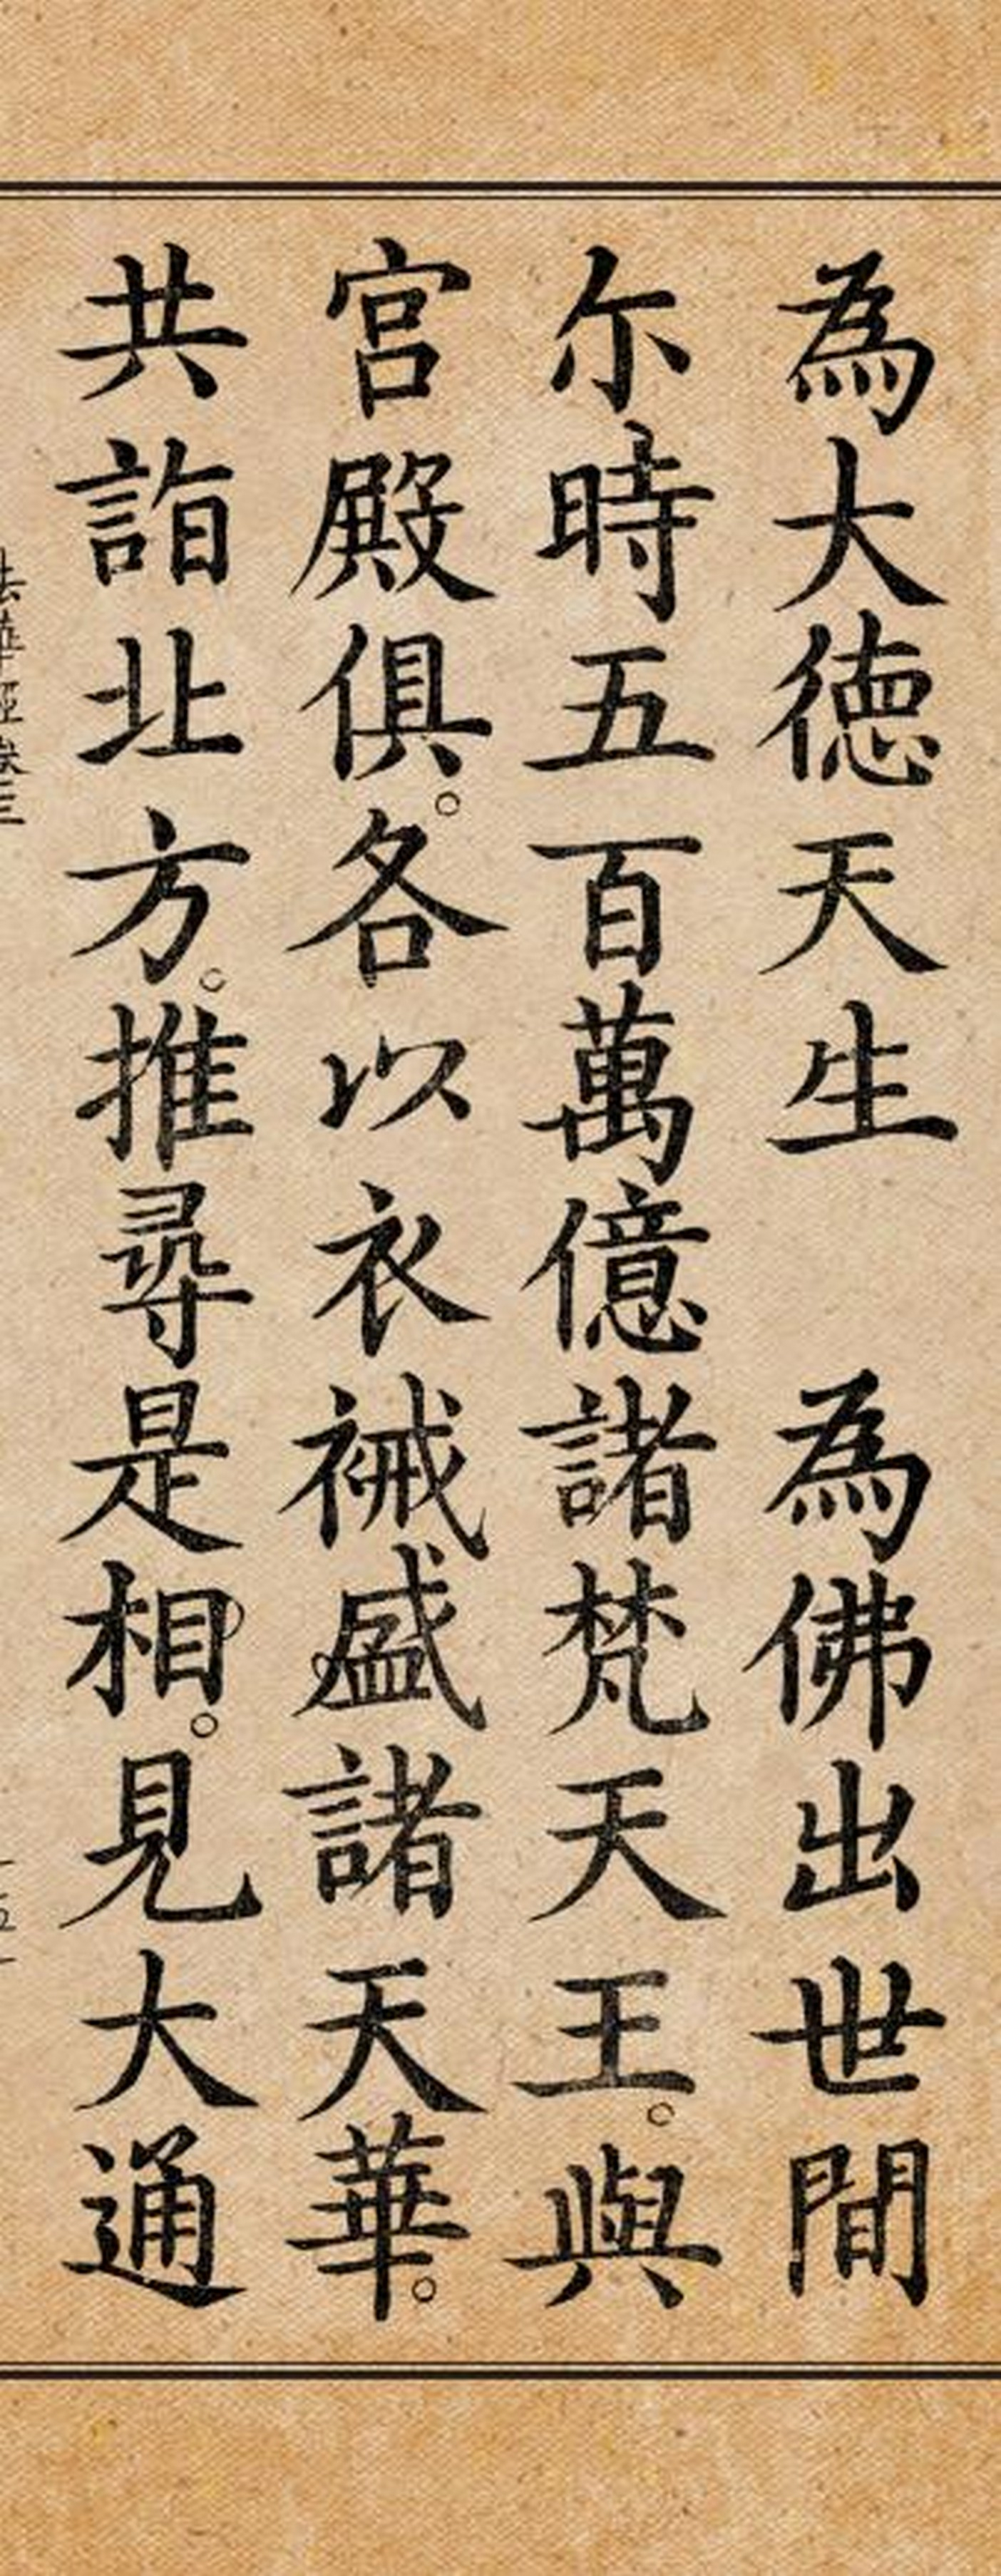 為大德天生　為佛出世間
尒時五百萬億諸梵天王。與
宮殿俱。各以衣裓盛諸天華。
共詣北方。推尋是相。見大通